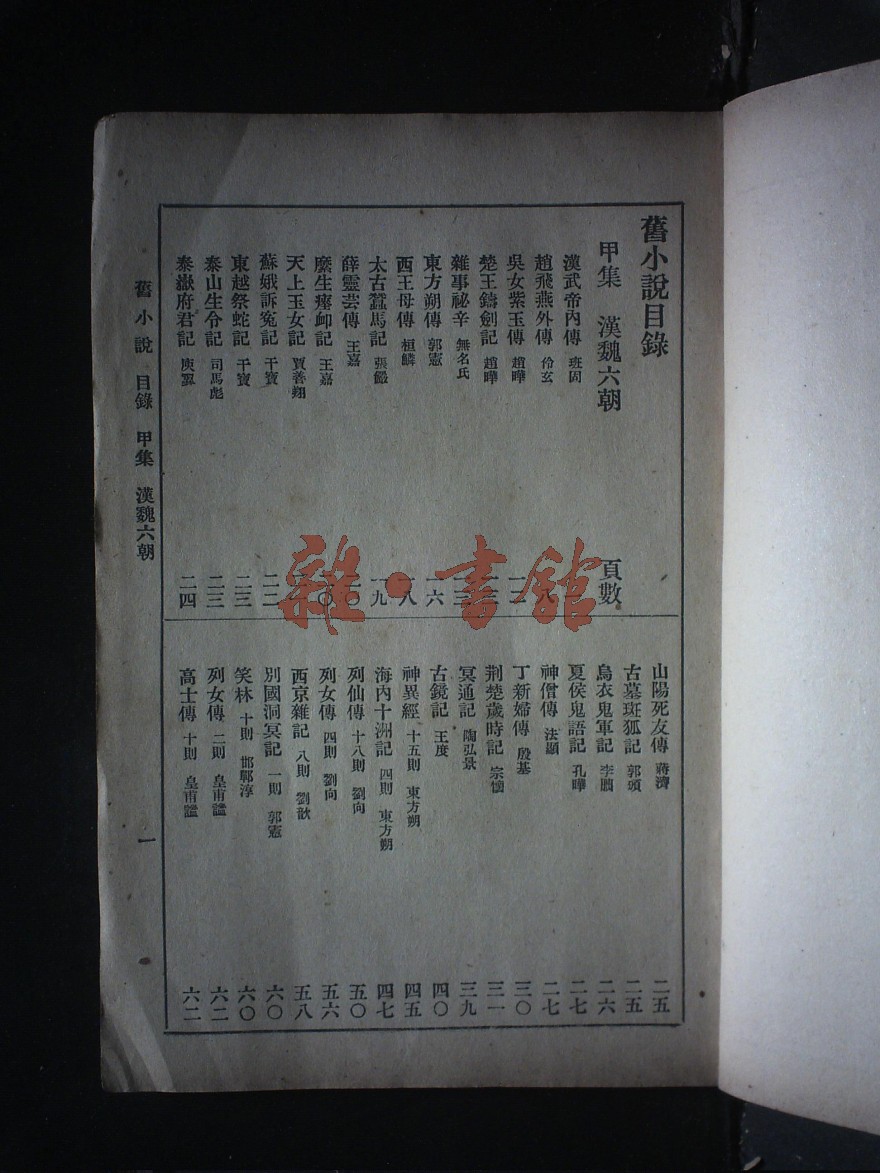 舊小說目錄
甲集 漢魏六朝 頁數
漢武帝內傳 班固
趙飛燕外傳 伶玄 八
吳女紫玉傳 趙曄
楚王鑄劍記 趙曄
雜事祕辛 無名氏
東方朔傳 郭憲 一六
西王母傳 桓驎 一八
太古蠶馬記 張儼 一九
薛靈芸傳 王嘉
糜生瘞卹記 王嘉
天上玉女記 賈善翔
蘇娥訴冤記 干寶 二二
東越祭蛇記 干寶 二三
泰山生令記 司馬彪 二三
泰嶽府君記 庾翼 二四
山陽死友傳 蔣濟 二五
古墓斑狐記 郭頒 二五
烏衣鬼軍記 李朏 二六
夏侯鬼語記 孔曄 二七
神僧傳 法顯 二七
丁新婦傳 殷基 三〇
荆楚歲時記 宗懍 三一
冥通記 陶弘景 三九
古鏡記 王度 四〇
神異經 十五則 東方朔 四五
海內十洲記 四則 東方朔 四七
列仙傳 十八則 劉向 五〇
列女傳 四則 劉向 五六
西京雜記 八則 劉歆 五八
別國洞冥記 一則 郭憲 六〇
笑林 十則 邯鄲淳 六〇
列女傳 二則 皇甫謐 六二
高士傳 十則 皇甫謐 六二
舊小說 目錄 甲集 漢魏六朝 一
雜·書館